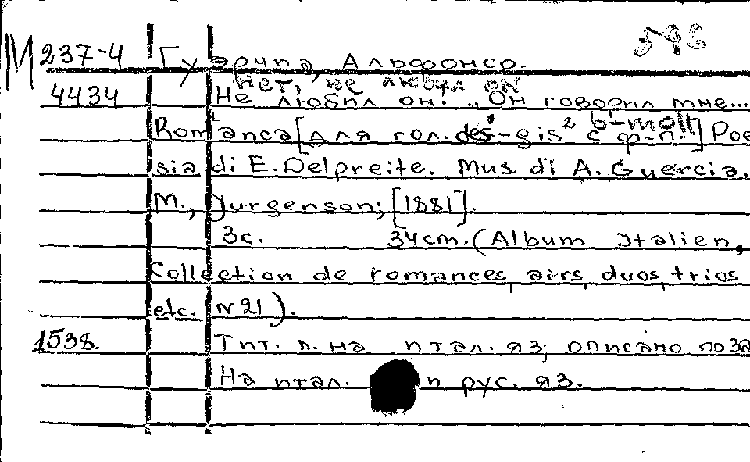 М 237-4 Гуэрчиа, Альфонсо.
Нет, не любил он
4434 Не любил он! „Он говорил мне...
Romanca [для гол. des¹-gis² с ф-п.] b-moll Poe
sia di E. Delpreite. Mus di A. Guercia.
M., Jurgenson, [1881].
3с. 34cm. (Album Italien,
Collection de romances, airs, duos, trios
etc. N21).
1538 Тит. л. на итал. яз, описано по за
На итал. и рус. яз.